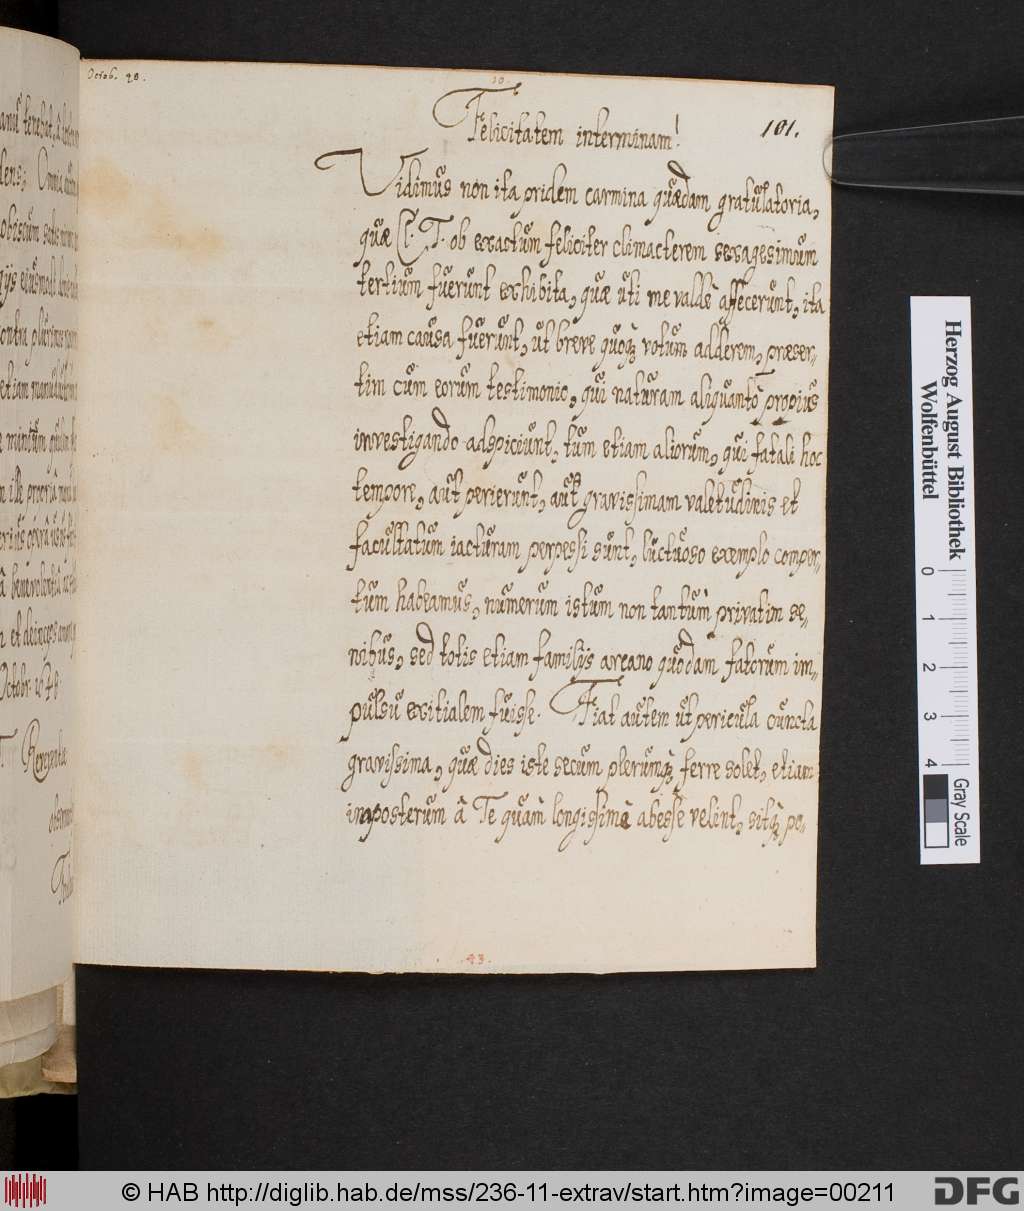 Octob. 28.
10.
101.
Felicitatem interminam!
Vidimus non ita pridem carmina quædam gratulatoria,
quæ Cl. T. ob exactum feliciter climacterem sexagesimum
tertium fuerunt exhibita, quæ uti me valdè affecerunt, ita
etiam causa fuerunt, ut breve quoq; votum adderem, præser-
tim cum eorum testimonio, qui naturam aliquantò propius
investigando adspiciunt, tum etiam aliorum, qui fatali hoc
tempore, aut perierunt, aut gravissimam valetudinis et
facultatum iacturam perpessi sunt, luctuoso exemplo comper-
tum habeamus, numerum istum non tantum privatim se-
nibus, sed totis etiam familijs arcano quodam fatorum im-
pulsu exitialem fuisse. Fiat autem ut pericula cuncta
gravissima, quæ dies iste secum plerumq; ferre solet, etiam
imposterum â Te quàm longissimè abesse velint, sitq; pe-
43.
Herzog August Bibliothek
Wolfenbüttel
0 1 2 3 4
Gray Scale
© HAB http://diglib.hab.de/mss/236-11-extrav/start.htm?image=00211
DFG